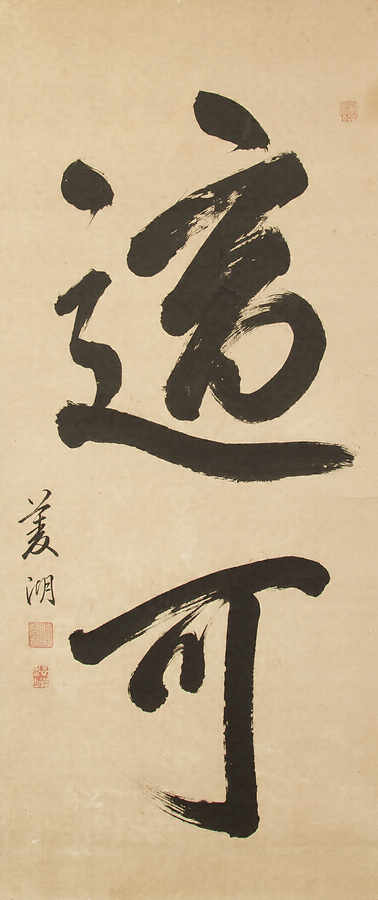 適可
菱湖